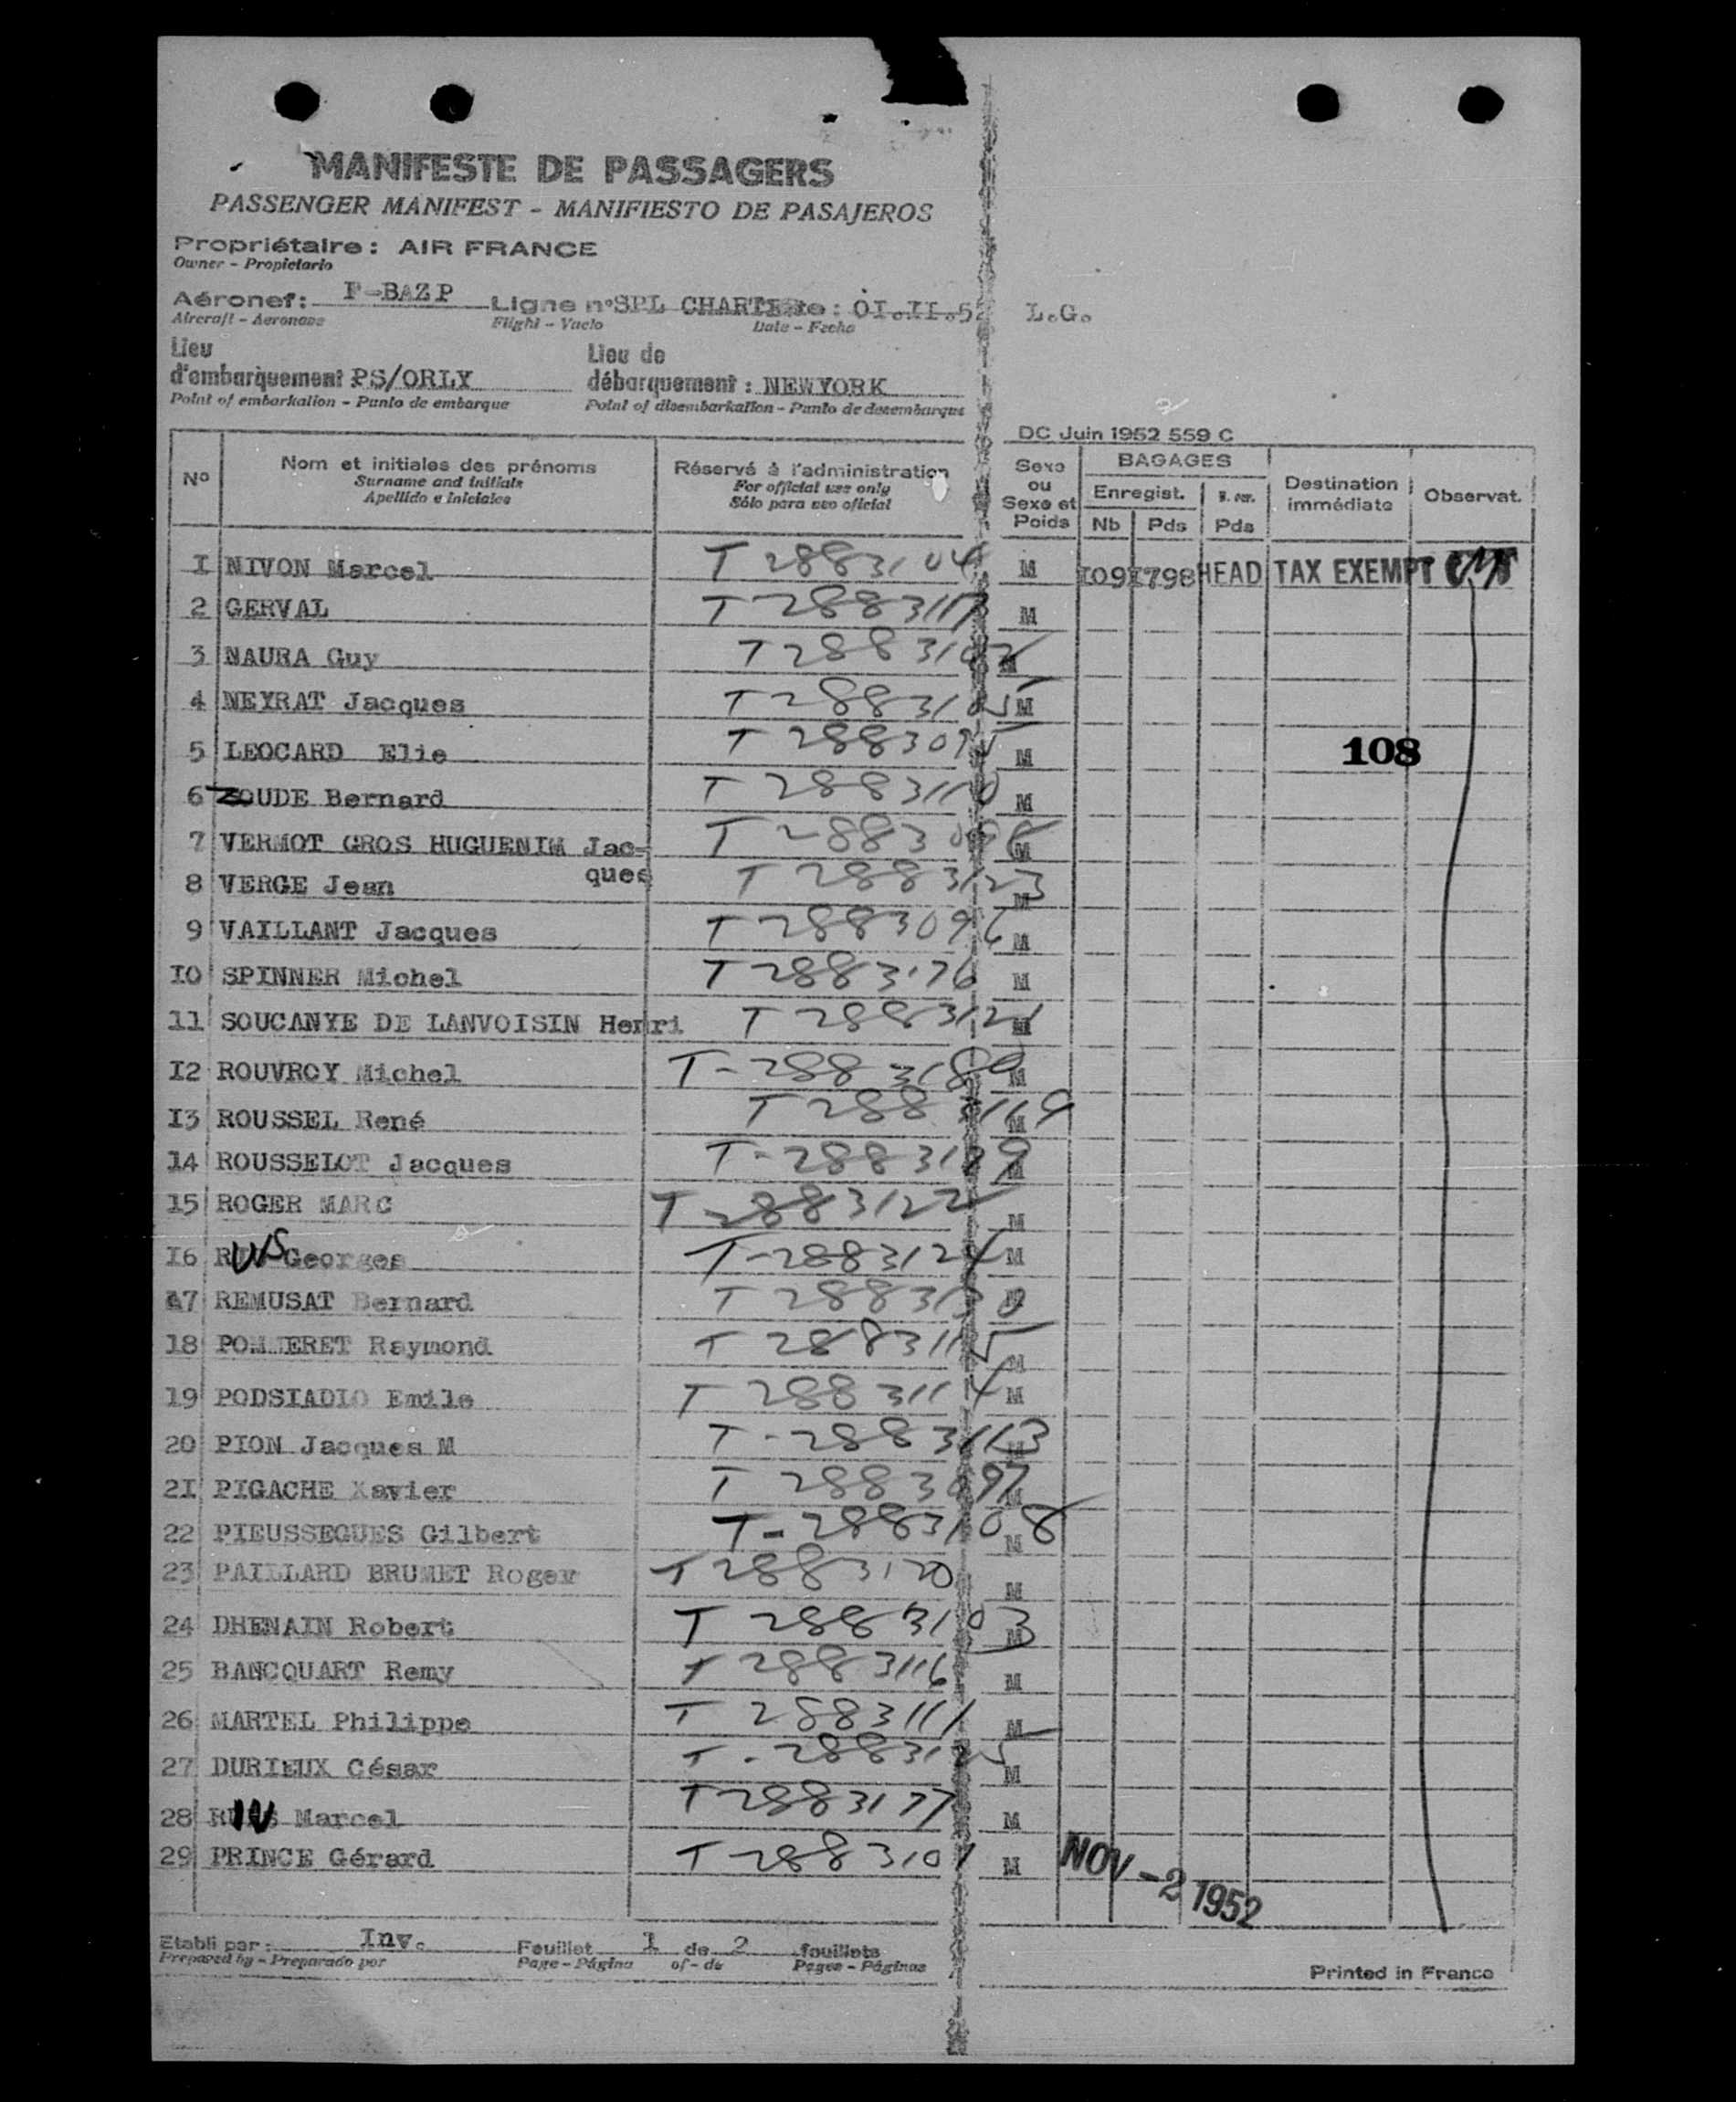 MANIFESTE DE PASSAGERS
PASSENGER MANIFEST - MANIFIESTO DE PASAJEROS
Propriétaire : AIR FRANCE
Owner - Propietario
Aéronef: F-BAZP Ligne n° SPL CHARTER : 0I.II.52 L.G.
Aircraft - Aeronave Flight - Vuelo Date - Fecha
Lieu d'embarquement : PS/ORLY Lieu de débarquement : NEWYORK
Point of embarkation - Punto de embarque Point of disembarkation - Punto de desembarque
DC Juin 1952 559 C
N° Nom et initiales des prénoms Réservé à l'administration Sexe ou Sexe et Poids BAGAGES Destination immédiate Observat.
Surname and initials For official use only Enregist.
Apellido e iniciales Sólo para uso oficial Nb Pds Pds
I NIVON Marcel T 2883104 M I09 I798 HEAD TAX EXEMPT
2 GERVAL T 2883117 M
3 NAURA Guy T 2883102 M
4 NEYRAT Jacques T 2883105 M
5 LEOCARD Elie T 2883095 M 108
6 ZOUDE Bernard T 2883110 M
7 VERMOT GROS HUGUENIM Jac- T 2883098 M
ques
8 VERGE Jean T 2883123 M
9 VAILLANT Jacques T 2883096 M
I0 SPINNER Michel T 2883176 M
11 SOUCANYE DE LANVOISIN Henri T 2883121 M
I2 ROUVROY Michel T-2883180 M
I3 ROUSSEL René T 2883119 M
14 ROUSSELOT Jacques T-2883179 M
15 ROGER MARC T-2883122 M
I6 Georges T-2883124 M
17 REMUSAT Bernard T 2883130 M
18 POMMERET Raymond T 2883115 M
19 PODSIADIO Emile T 2883114 M
20 PION Jacques M T-2883113 M
2I PIGACHE Xavier T 2883097 M
22 PIEUSSEGUES Gilbert T-2883108 M
23 PAILLARD BRUMET Roger T 2883120 M
24 DHENAIN Robert T 2883103 M
25 BANCQUART Remy T 2883116 M
26 MARTEL Philippe T 2883111 M
27 DURIEUX César T-2883125 M
28 Marcel T 2883177 M
29 PRINCE Gérard T 2883101 M
NOV -2 1952
Etabli par : Inv. Feuillet 1 de 2 feuillets
Prepared by - Preparado por Page - Página of - de Pages - Páginas
Printed in France